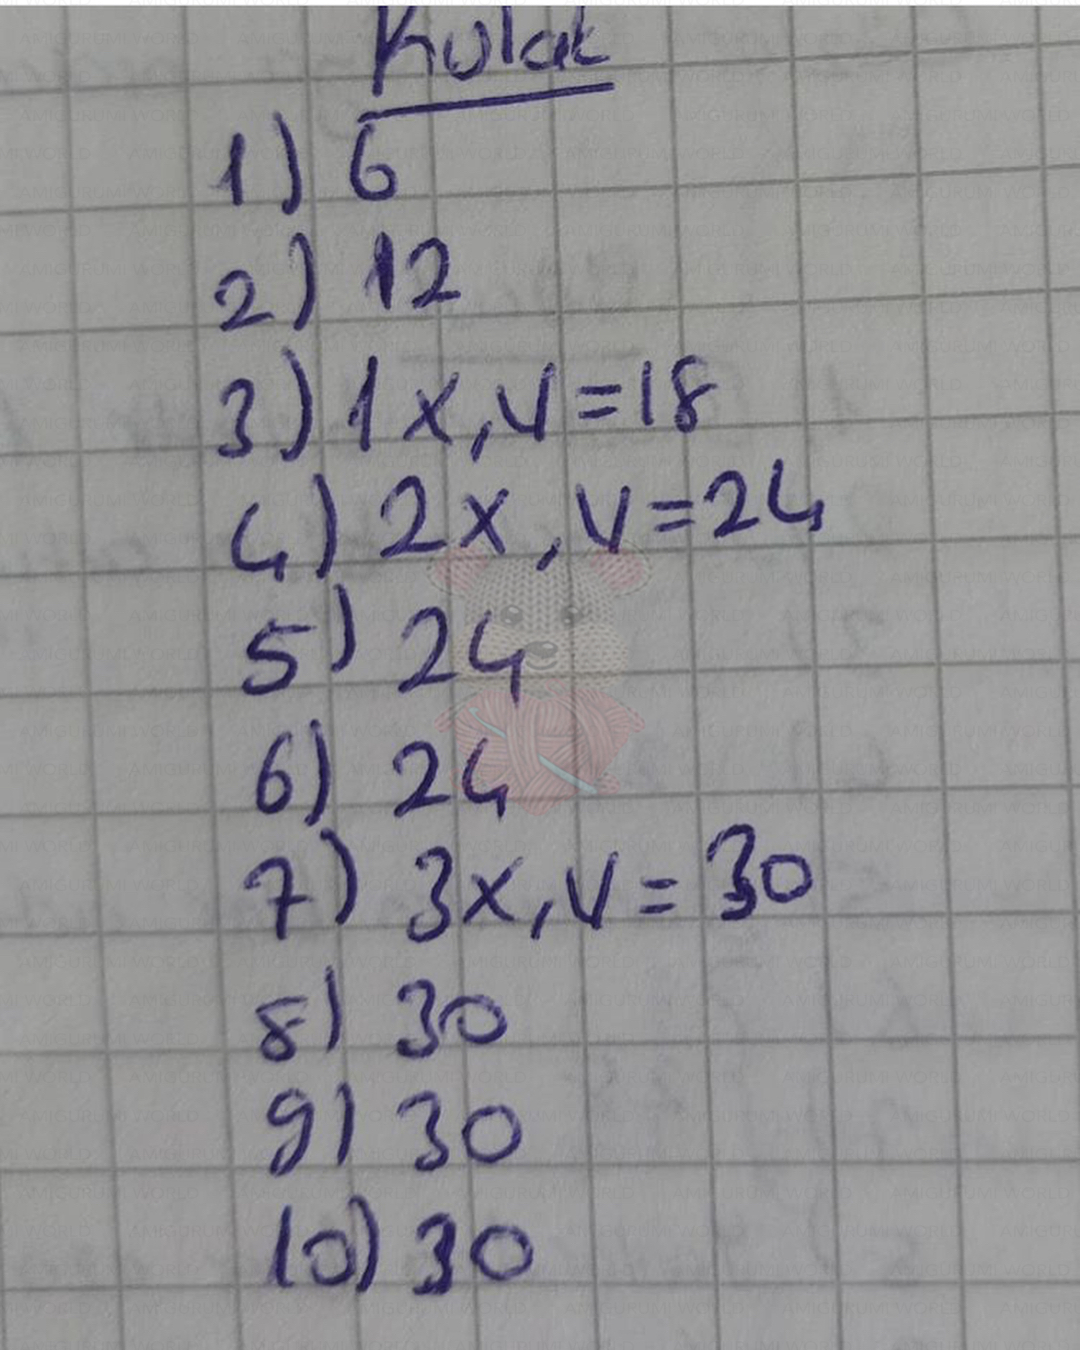 Kulak
1) 6
2) 12
3) 1x,v=18
4) 2x,v=24
5) 24
6) 24
7) 3x,v=30
8) 30
9) 30
10) 30